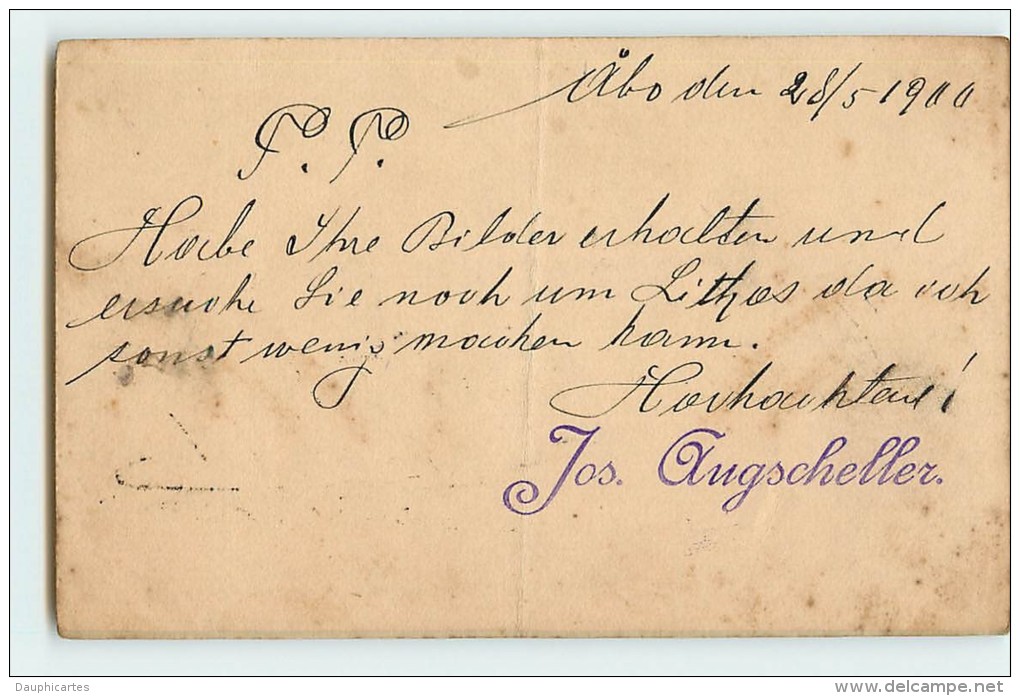 Åbo den 28/5 1900
P. P.
Habe Ihre Bilder erhalten und
ersuche Sie noch um Lithos da ich
sonst wenig machen kann.
Hochachtend!
Jos. Augscheller.
Dauphicartes
www.delcampe.net